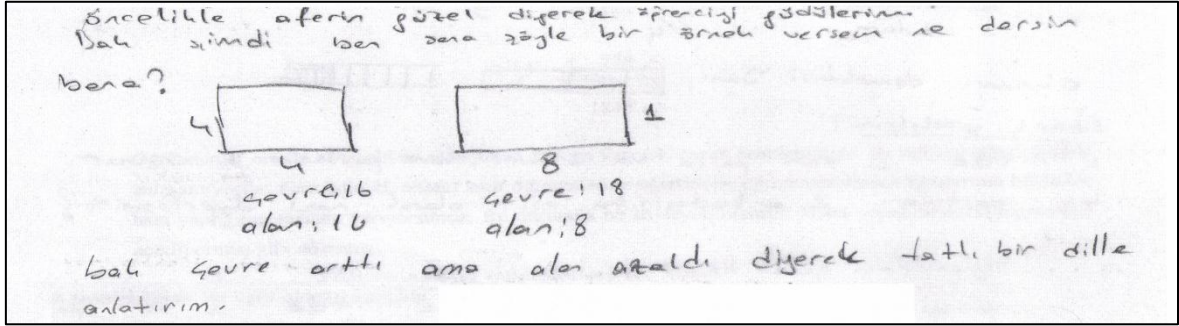 öncelikle aferin güzel diyerek öğrenciyi güdülerim.
Bak şimdi ben sana şöyle bir örnek versem ne dersin
bana?
4 1
4 8
çevre:16 çevre:18
alan:16 alan:8
bak çevre arttı ama alan azaldı diyerek tatlı bir dille
anlatırım.